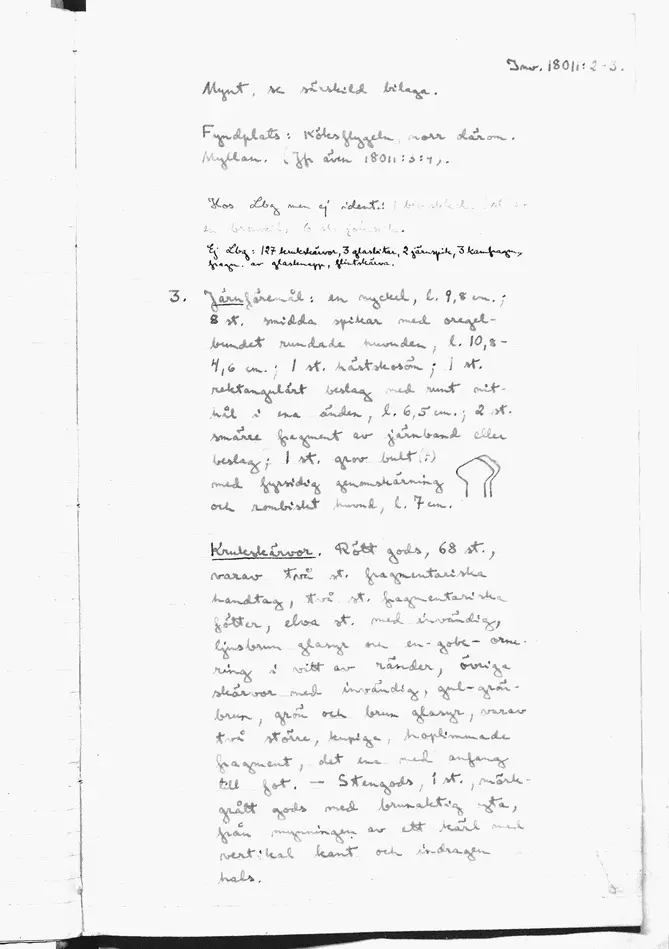 Inv. 18011:2-3.
Mynt, se särskild bilaga.
Fyndplats: Köksflygeln, norr däron.
Myllan. (Jfr även 18011:3:4).
Kos Lbg men ej ident.:
Ej Lbg: 127 krukskärvor, 3 glasbitar, 2 järnspik, 3 kamfragm.,
fragm. av glasknapp, flintskärva.
3. Järnföremål: en nyckel, l. 9,8 cm.;
8 st. smidda spikar med oregel-
bundet rundade huvuden, l. 10,8-
4,6 cm.; 1 st. hästskosöm; 1 st.
rektangulärt beslag med runt nit-
hål i ena änden, l. 6,5 cm.; 2 st.
smärre fragment av järnband eller
beslag; 1 st. grov bult(;)
med fyrsidig genomskärning
och rombiskt huvud, l. 7 cm.
Krukskärvor. Rött gods, 68 st.,
varav två st. fragmentariska
handtag, två st. fragmentariska
fötter, elva st. med invändig,
ljusbrun glasyr och en-gobe-orne-
ring i vitt av ränder, övriga
skärvor med invändig, gul-grön-
brun, grön och brun glasyr, varav
två större, kupiga, hoplimmade
fragment, det ena med anfang
till fot. — Stengods, 1 st., mörk-
grått gods med brunaktig yta,
från mynningen av ett kärl med
vertikal kant och indragen
hals.